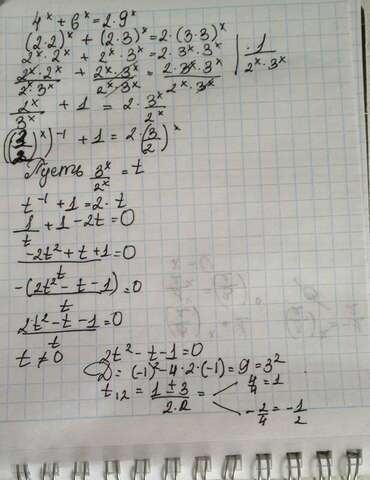 4^x + 6^x = 2·9^x
(2·2)^x + (2·3)^x = 2·(3·3)^x
2^x·2^x + 2^x·3^x = 2·3^x·3^x | · 1/(2^x·3^x)
(2^x·2^x)/(2^x·3^x) + (2^x·3^x)/(2^x·3^x) = (2·3^x·3^x)/(2^x·3^x)
2^x/3^x + 1 = 2·3^x/2^x
((3/2)^x)^-1 + 1 = 2·(3/2)^x
Пусть 3^x/2^x = t
t^-1 + 1 = 2·t
1/t + 1 - 2t = 0
(-2t² + t + 1)/t = 0
-(2t² - t - 1)/t = 0
(2t² - t - 1)/t = 0
t ≠ 0 2t² - t - 1 = 0
D = (-1)² - 4·2·(-1) = 9 = 3²
t₁₂ = (1 ± 3)/(2·2) = 4/4 = 1
-2/4 = -1/2